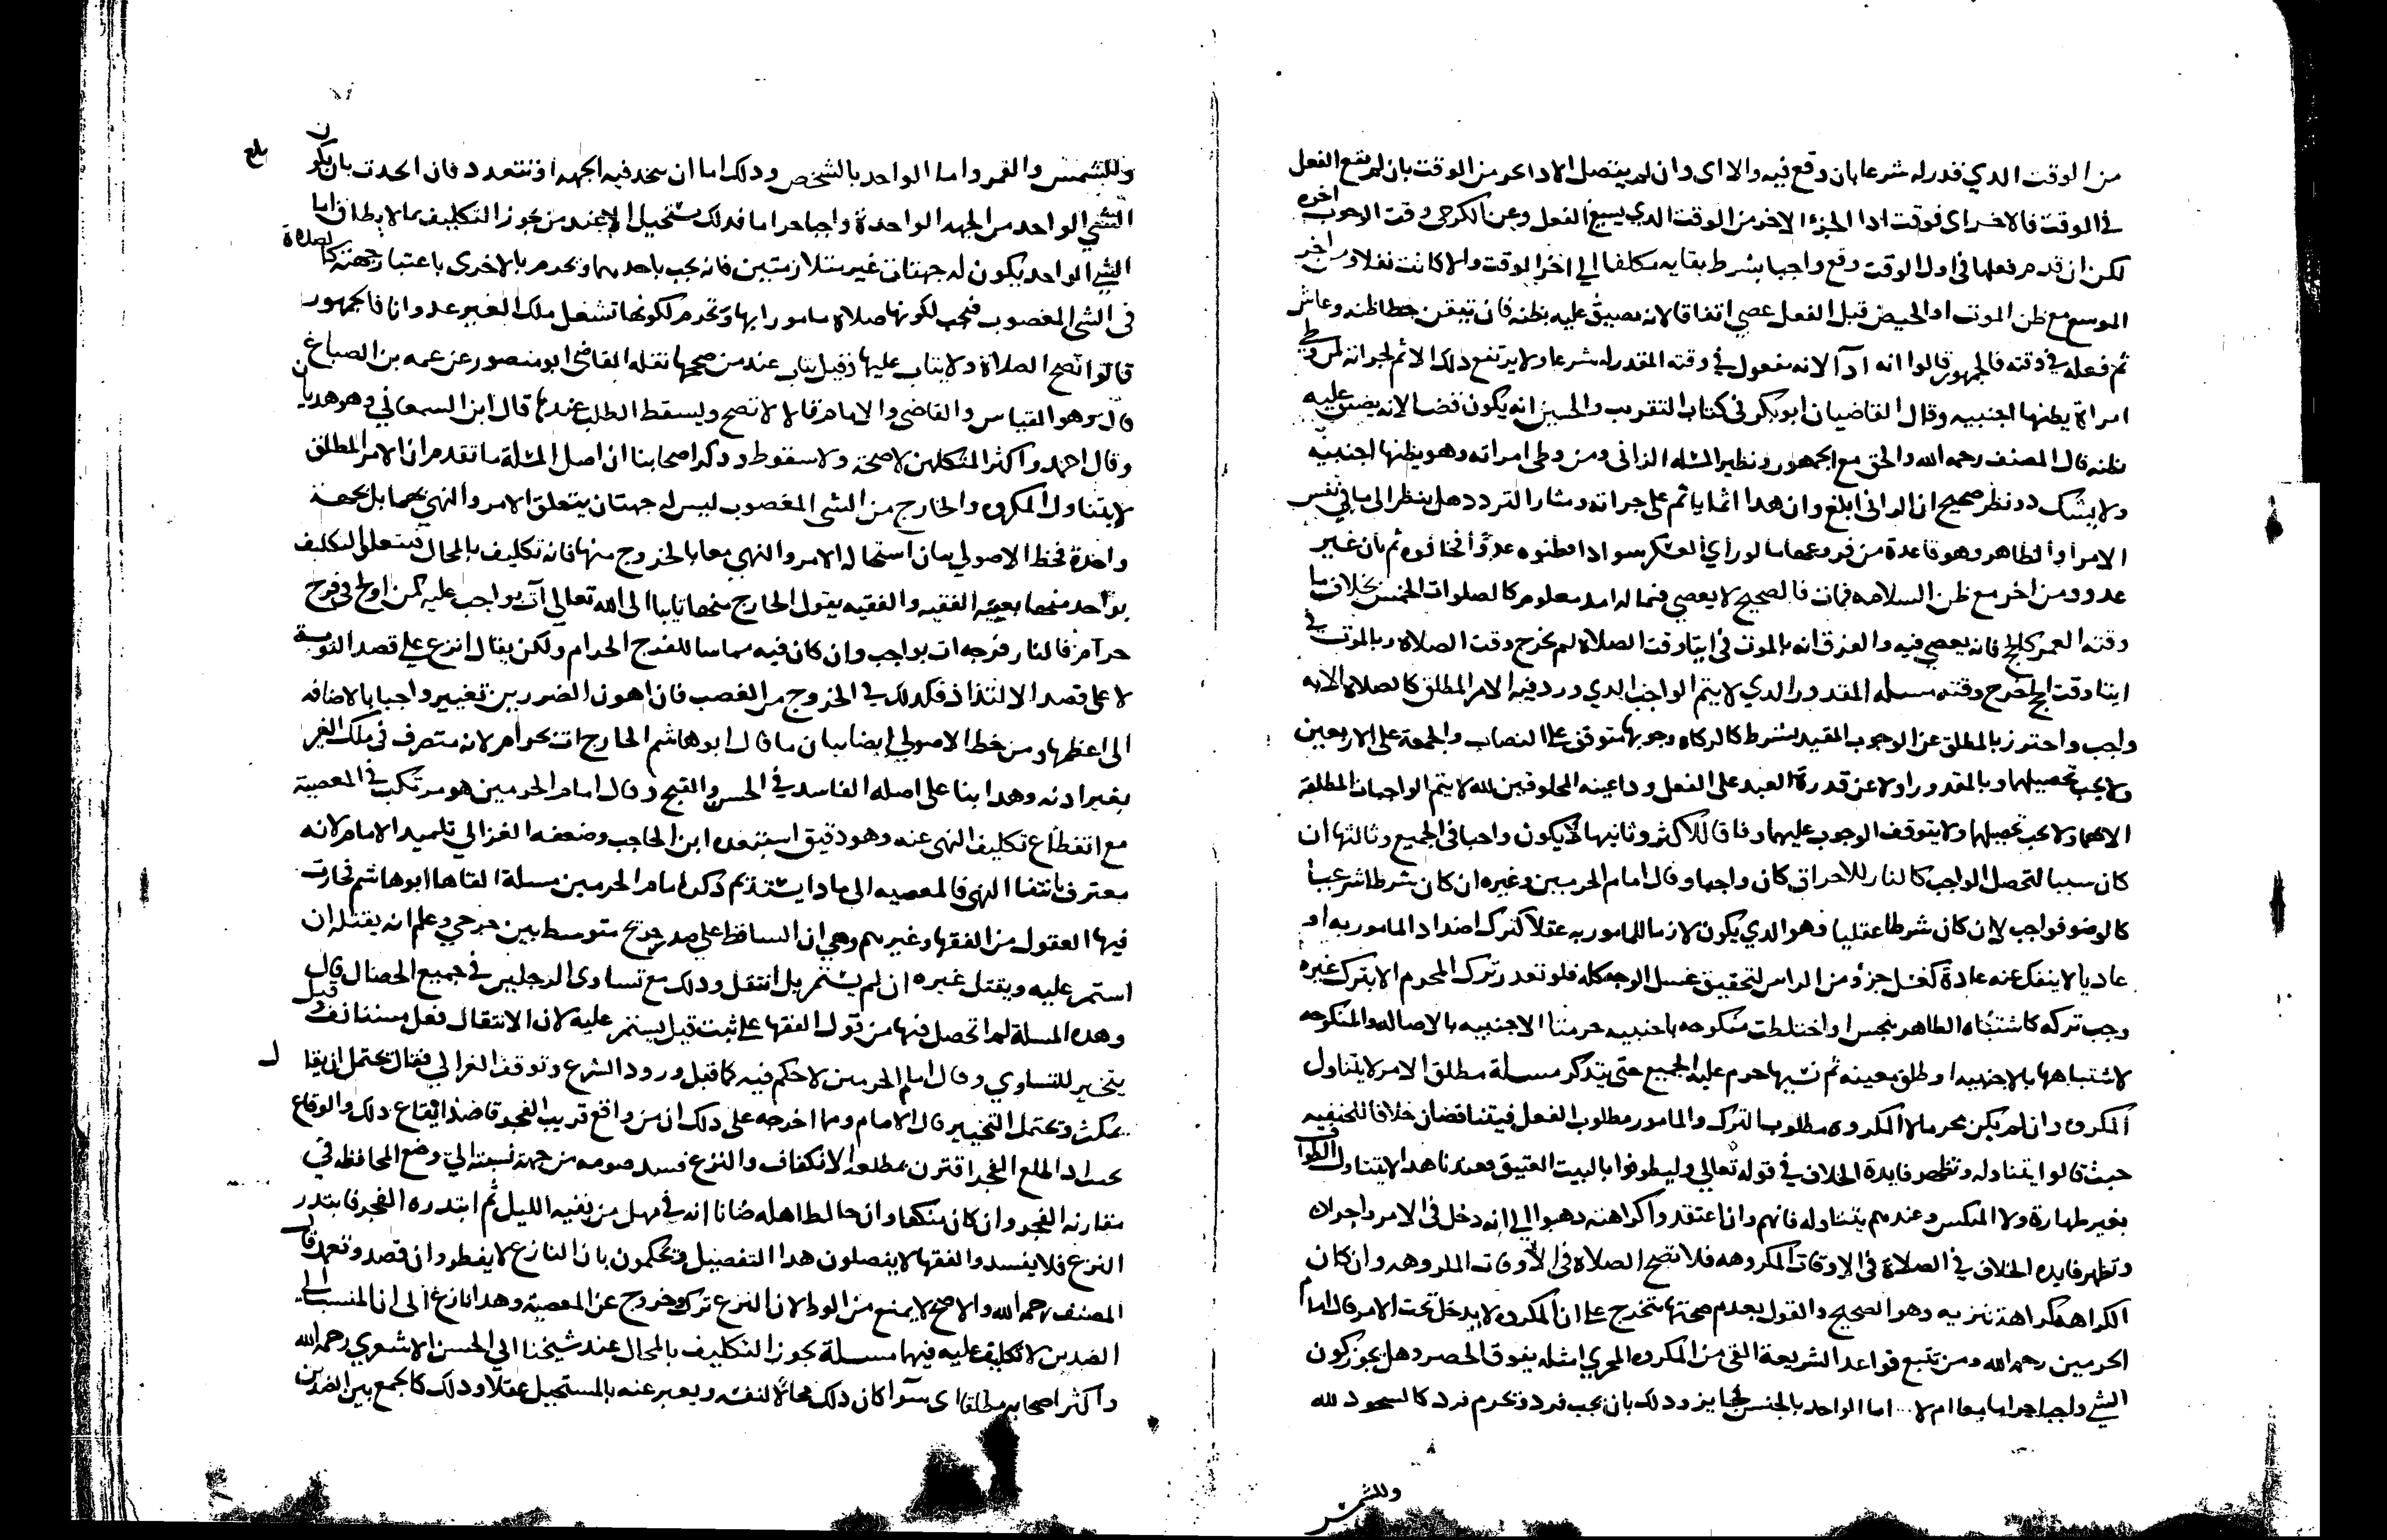 من الوقت الدي قدر له شرعا بان وقع فيه والا اى وان لم يتصل الادا عر من الوقت بان لم يقع الفعل
في الوقت فالاخر اى فوقت ادا الجزء الاخر من الوقت الدي يسع الفعل وعن الكرخي وقت الوجوب اخره
لكن ان قدم فعلها في اول الوقت وقع واجبا بشرط بقايه مكلفا الى اخر الوقت والا كانت نفلا ومن اخر
الموسع مع ظن الموت او الحيض قبل الفعل عصي اتفاقا لانه مضيق عليه بظنه فان تيقن خطا ظنه وعاش
ثم فعله في وقته فالجمهور قالوا انه ادآ لانه مفعول في وقته المقدر له شرعا ولا يرتفع دلك الاثم لجراته كمن وطي
امراة يظنها اجنبيه وقال القاضيان ابو بكر في كتاب التقريب والحسين انه يكون قضا لانه يضيق عليه
بظنه قال المصنف رحمه الله والحق مع الجمهور ونظير المسئله الزانى ومن وطى امراته وهو يظنها اجنبيه
ولا يشك دو نظر صحيح ان الزانى ابلغ وان هدا انما ياثم على جراته ومثار التردد هل ينظر الى ما في نفس
الامر او الظاهر وهو قاعدة من فروعها ما لو راى العسكر سوادا فظنوه عدوًا فخافوه ثم بان غير
عدو ومن اخر مع ظن السلامه فمات فالصحيح لا يعصي فيما له امد معلوم كالصلوات الخمس بخلاف ما
وقته العمر كالحج فانه يعصي فيه والفرق انه بالموت في اثنا وقت الصلاة لم يخرج وقت الصلاه وبالموت في
اثنا وقت الحج خرج وقته مسله المقدور الدي لا يتم الواجب الدي ورد فيه الامر المطلق كالصلاه الا به
واجب واحترز بالمطلق عن الوجوب المقيد بشرط كالزكاه وجوبها متوقف على النصاب والجمعة على الاربعين
ولا يجب تحصيلهما وبالمقدور اولا عن قدرة العبد على الفعل وداعيته المخلوقين لله لا يتم الواجبات المطلقة
الا بهما ولا يجب تحصيلهما ولا يتوقف الوجوب عليهما وفاقا للاكثر وثانيها لا يكون واجبا في الجميع وثالثها ان
كان سببا لتحصل الواجب كالنار للاحراق كان واجبا وقال امام الحرمين وغيره ان كان شرطا شرعيا
كالوضو فواجب لا ان كان شرطا عقليا وهو الدي يكون لازما للمامور به عقلا كترك اضداد المامور به او
عاديا لا ينفك عنه عادة كغسل جزؤ من الراس لتحقيق غسل الوجه كله فلو تعدر ترك المحرم الا بترك غيره
وجب تركه كاشتباه الطاهر بنجس او اختلطت منكوحه باجنبيه حرمتا الاجنبيه بالاصاله والمنكوحه
لاشتباهها بالاجنبيه او طلق معينه ثم نسيها حرم عليه الجميع حتى يتدكر مسلة مطلق الامر لا يتناول
المكروه وان لم يكن محرما لان المكروه مطلوب الترك والمامور مطلوب الفعل فيتناقضان خلافا للحنفيه
حيث قالوا يتناوله وتظهر فايدة الخلاف في قوله تعالي وليطوفوا بالبيت العتيق فعندنا هدا لا يتناول الطواف
بغير طهارة ولا المنكس وعندهم يتناوله فانهم وان اعتقدوا كراهته دهبوا الى انه دخل فى الامر واجزاه
وتظهر فايده الخلاف في الصلاة في الاوقات المكروهه فلا تصح الصلاه في الاوقات المكروهه وان كان
الكراهه كراهة تنزيه وهو الصحيح والقول بعدم صحتها يتخرج على ان المكروه لا يدخل تحت الامر قال امام
الحرمين رحمه الله ومن تتبع قواعد الشريعة الفى من المكروه المجزي امثله يفوق الحصر وهل يجوز كون
الشي واجبا حراما معا ام لا اما الواحد بالجنس فجايز ودلك بان يجب فرد ويحرم فرد كالسجود لله
وللشمس
وللشمس والقمر واما الواحد بالشخص ودلك اما ان تتحد فيه الجهه او تتعدد فان اتحدت بان يكون
الشي الواحد من الجهه الواحدة واجبا حراما فدلك مستحيل الا عند من يجوز التكليف بما لا يطاق اما
الشي الواحد يكون له جهتان غير متلازمتين فانه يجب باحديهما ويحرم بالاخرى باعتبار جهته كالصلاة
فى الشي المغصوب فيجب لكونها صلاه مامورا بها وتحرم لكونها تشغل ملك الغير عدوانا فالجمهور
قالوا تصح الصلاة ولا يثاب عليها وقيل يثاب عند من صححها نقله القاضى ابو منصور عن عمه بن الصباغ
قال وهو القياس والقاضى والامام قالا لا تصح ويسقط الطلب عندها قال ابن السمعاني وهو هديان
وقال احمد واكثر المتكلمين لا صحة ولا سقوط ودكر اصحابنا ان اصل المسئلة ما تقدم ان الامر المطلق
لا يتناول المكروه والخارج من الشى المغصوب ليس له جهتان يتعلق الامر والنهي بهما بل بجهة
واحدة فحظ الاصولي بيان استحاله الامر والنهى معا بالخروج منها فانه تكليف بالمحال فيتعلق التكليف
بواحد منهما بعينه الفقيه والفقيه يقول الخارج منها تايبا الى الله تعالى آت بواجب عليه كمن اولج فى فرج
حرآم فالنازع فرجه ات بواجب وان كان فيه مماسا للفرج الحرام ولكن يقال انزع على قصد التوبة
لا على قصد الالتذاذ فكدلك في الخروج من الغصب فان اهون الضررين يصير واجبا بالاضافه
الى اعظمها ومن حظ الاصولي ايضا بيان ما قال ابو هاشم الخارج ات بحرام لانه متصرف فى ملك الغير
بغير ادنه وهدا بنا على اصله الفاسد في الحسن والقبح وقال امام الحرمين هو مرتكب في المعصية
مع انقطاع تكليف النهى عنه وهو دقيق استبعده ابن الحاجب وضعفه الغزالي تلميد الامام لانه
معترف بانتفا النهى فالمعصيه الى مادا يستند ثم دكر امام الحرمين مسلة القاها ابو هاشم فحارت
فيها العقول من الفقها وغيرهم وهي ان الساقط على صدر جريح متوسط بين جرحي وعلم انه يقتل ان
استمر عليه ويقتل غيره ان لم يستمر بل انتقل ودلك مع تساوى الرجلين في جميع الخصال قال
وهده المسلة لم اتحصل فيها من قول الفقها على ثبت قيل يستمر عليه لان الانتقال فعل مستانف وقيل
يتخير للتساوي وقال امام الحرمين لا حكم فيه كما قبل ورود الشرع وتوقف الغزالي فقال يحتمل ان يقال
يمكث ويحتمل التخيير قال الامام ومما اخرجه على دلك ان من واقع قريب الفجر قاصدا ايقاع دلك والوقاع
بحيث ادا طلع الفجر اقترن بمطلعه الانكفاف والنزع فسد صومه من جهة نسبته الى وضع المحافظه في
مقارنه الفجر وان كان منكفا وان خالط اهله ضانا انه في مهل من بقيه الليل ثم ابتدره الفجر فابتدر
النزع فلا يفسد والفقها لا يفصلون هدا التفصيل ويحكمون بان النازع لا يفطر وان قصد وتعمد قال
المصنف رحمه الله والاصح لا يمنع من الوط لان النزع ترك وخروج عن المعصية وهدا نازع الى ان المنسب الى
الضدين لا تكليف عليه فيها مسلة يجوز التكليف بالمحال عند شيخنا ابي الحسن الاشعري رحمه الله
واكثر اصحابه مطلقا اى سوآ كان دلك محالا لنفسه ويعبر عنه بالمستحيل عقلا ودلك كالجمع بين الضدين
بلغ